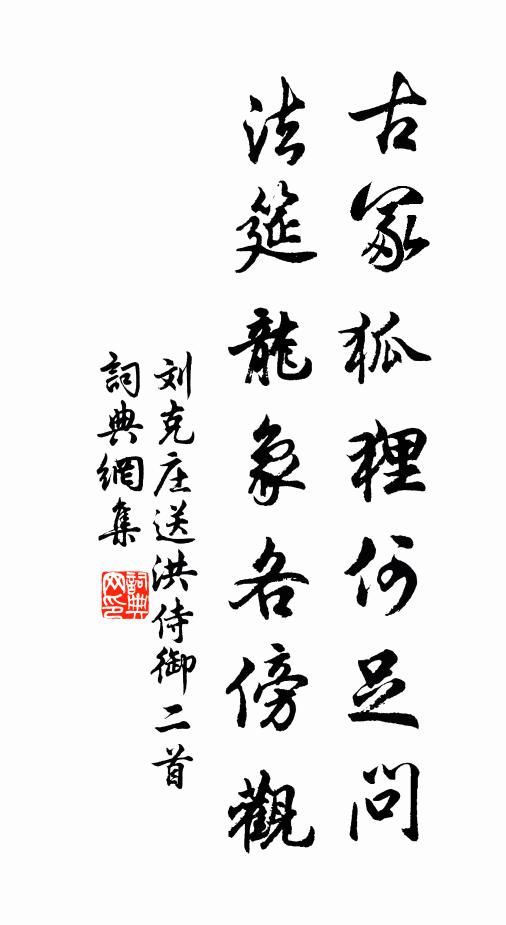 古冢狐狸何足問
法筵龍象各傍觀
刘克庄送洪侍御二首
詞典網集
詞典网印